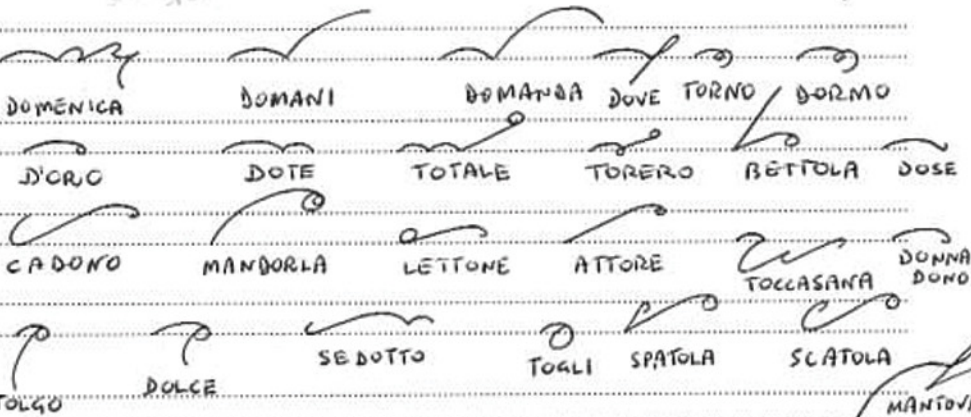 DOMENICA DOMANI DOMANDA DOVE TORNO DORMO
D'ORO DOTE TOTALE TORERO BETTOLA DOSE
CADONO MANDORLA LETTONE ATTORE TOCCASANA DONNA
DONO
TOLGO DOLCE SEDOTTO TOGLI SPATOLA SCATOLA
MANTOVA